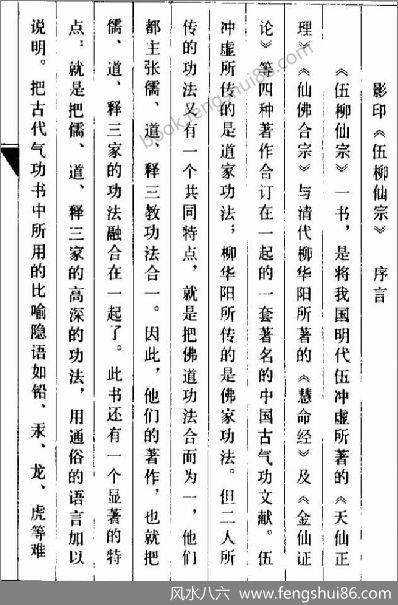 影印《伍柳仙宗》 序言
《伍柳仙宗》一书，是将我国明代伍冲虚所著的《天仙正
理》《仙佛合宗》与清代柳华阳所著的《慧命经》及《金仙证
论》等四种著作合订在一起的一套著名的中国古气功文献。伍
冲虚所传的是道家功法；柳华阳所传的是佛家功法。但二人所
传的功法又有一个共同特点，就是把佛道功法合而为一，他们
都主张儒、道、释三教功法合一。因此，他们的著作，也就把
儒、道、释三家的功法融合在一起了。此书还有一个显著的特
点：就是把儒、道、释三家的高深的功法，用通俗的语言加以
说明。把古代气功书中所用的比喻隐语如铅、汞、龙、虎等难
book.fengshui86.com
风水八六 - www.fengshui86.com